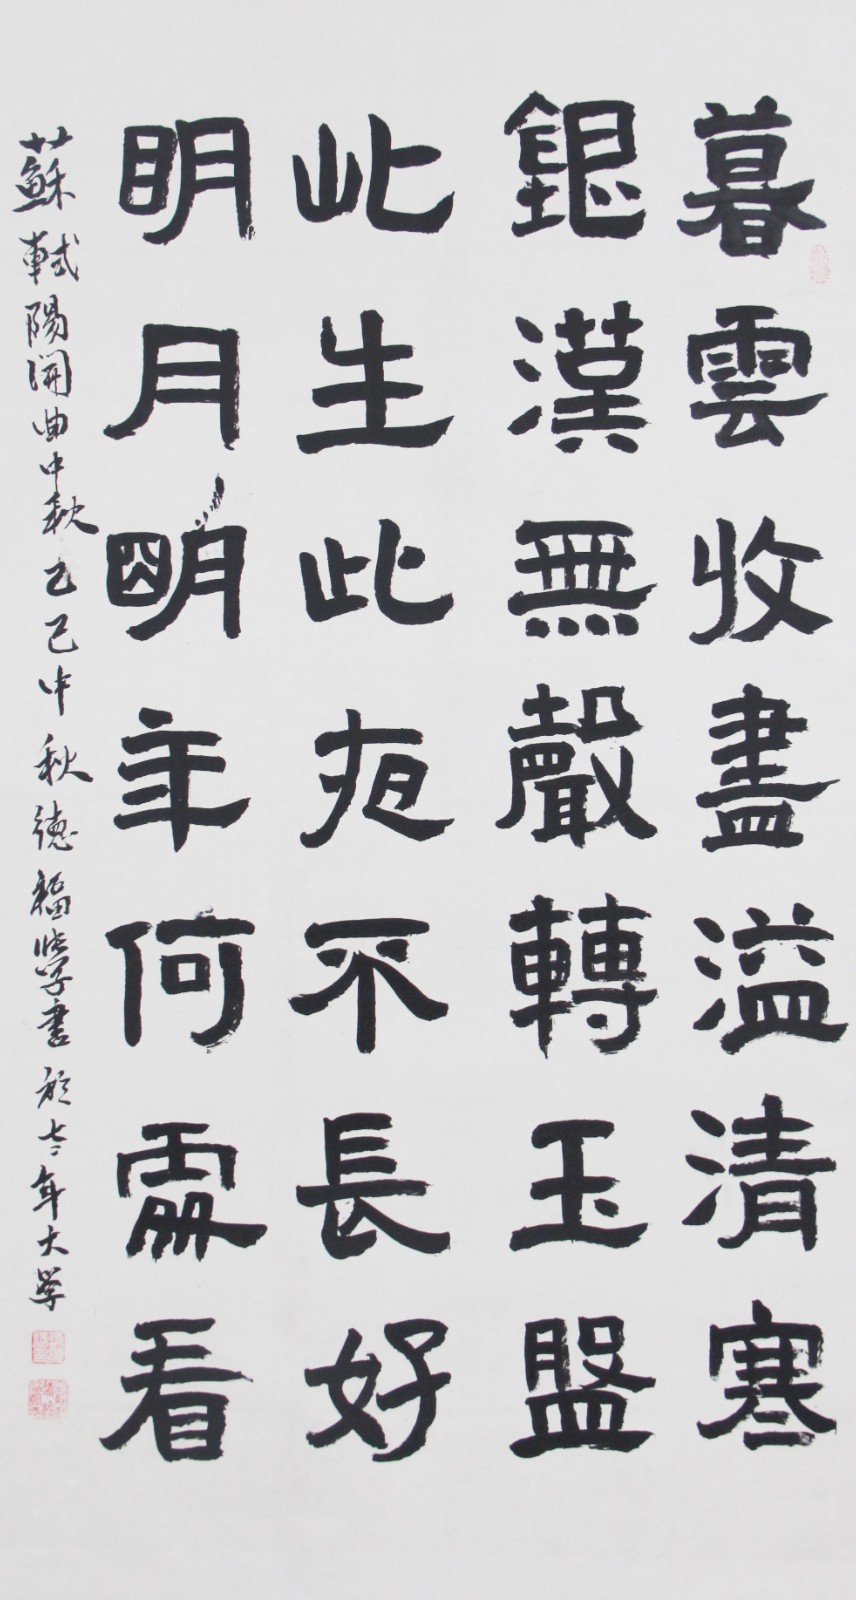 暮雲收盡溢清寒
銀漢無聲轉玉盤
此生此夜不長好
明月明年何處看
蘇軾陽關曲中秋乙巳中秋德福學書於七二年大学